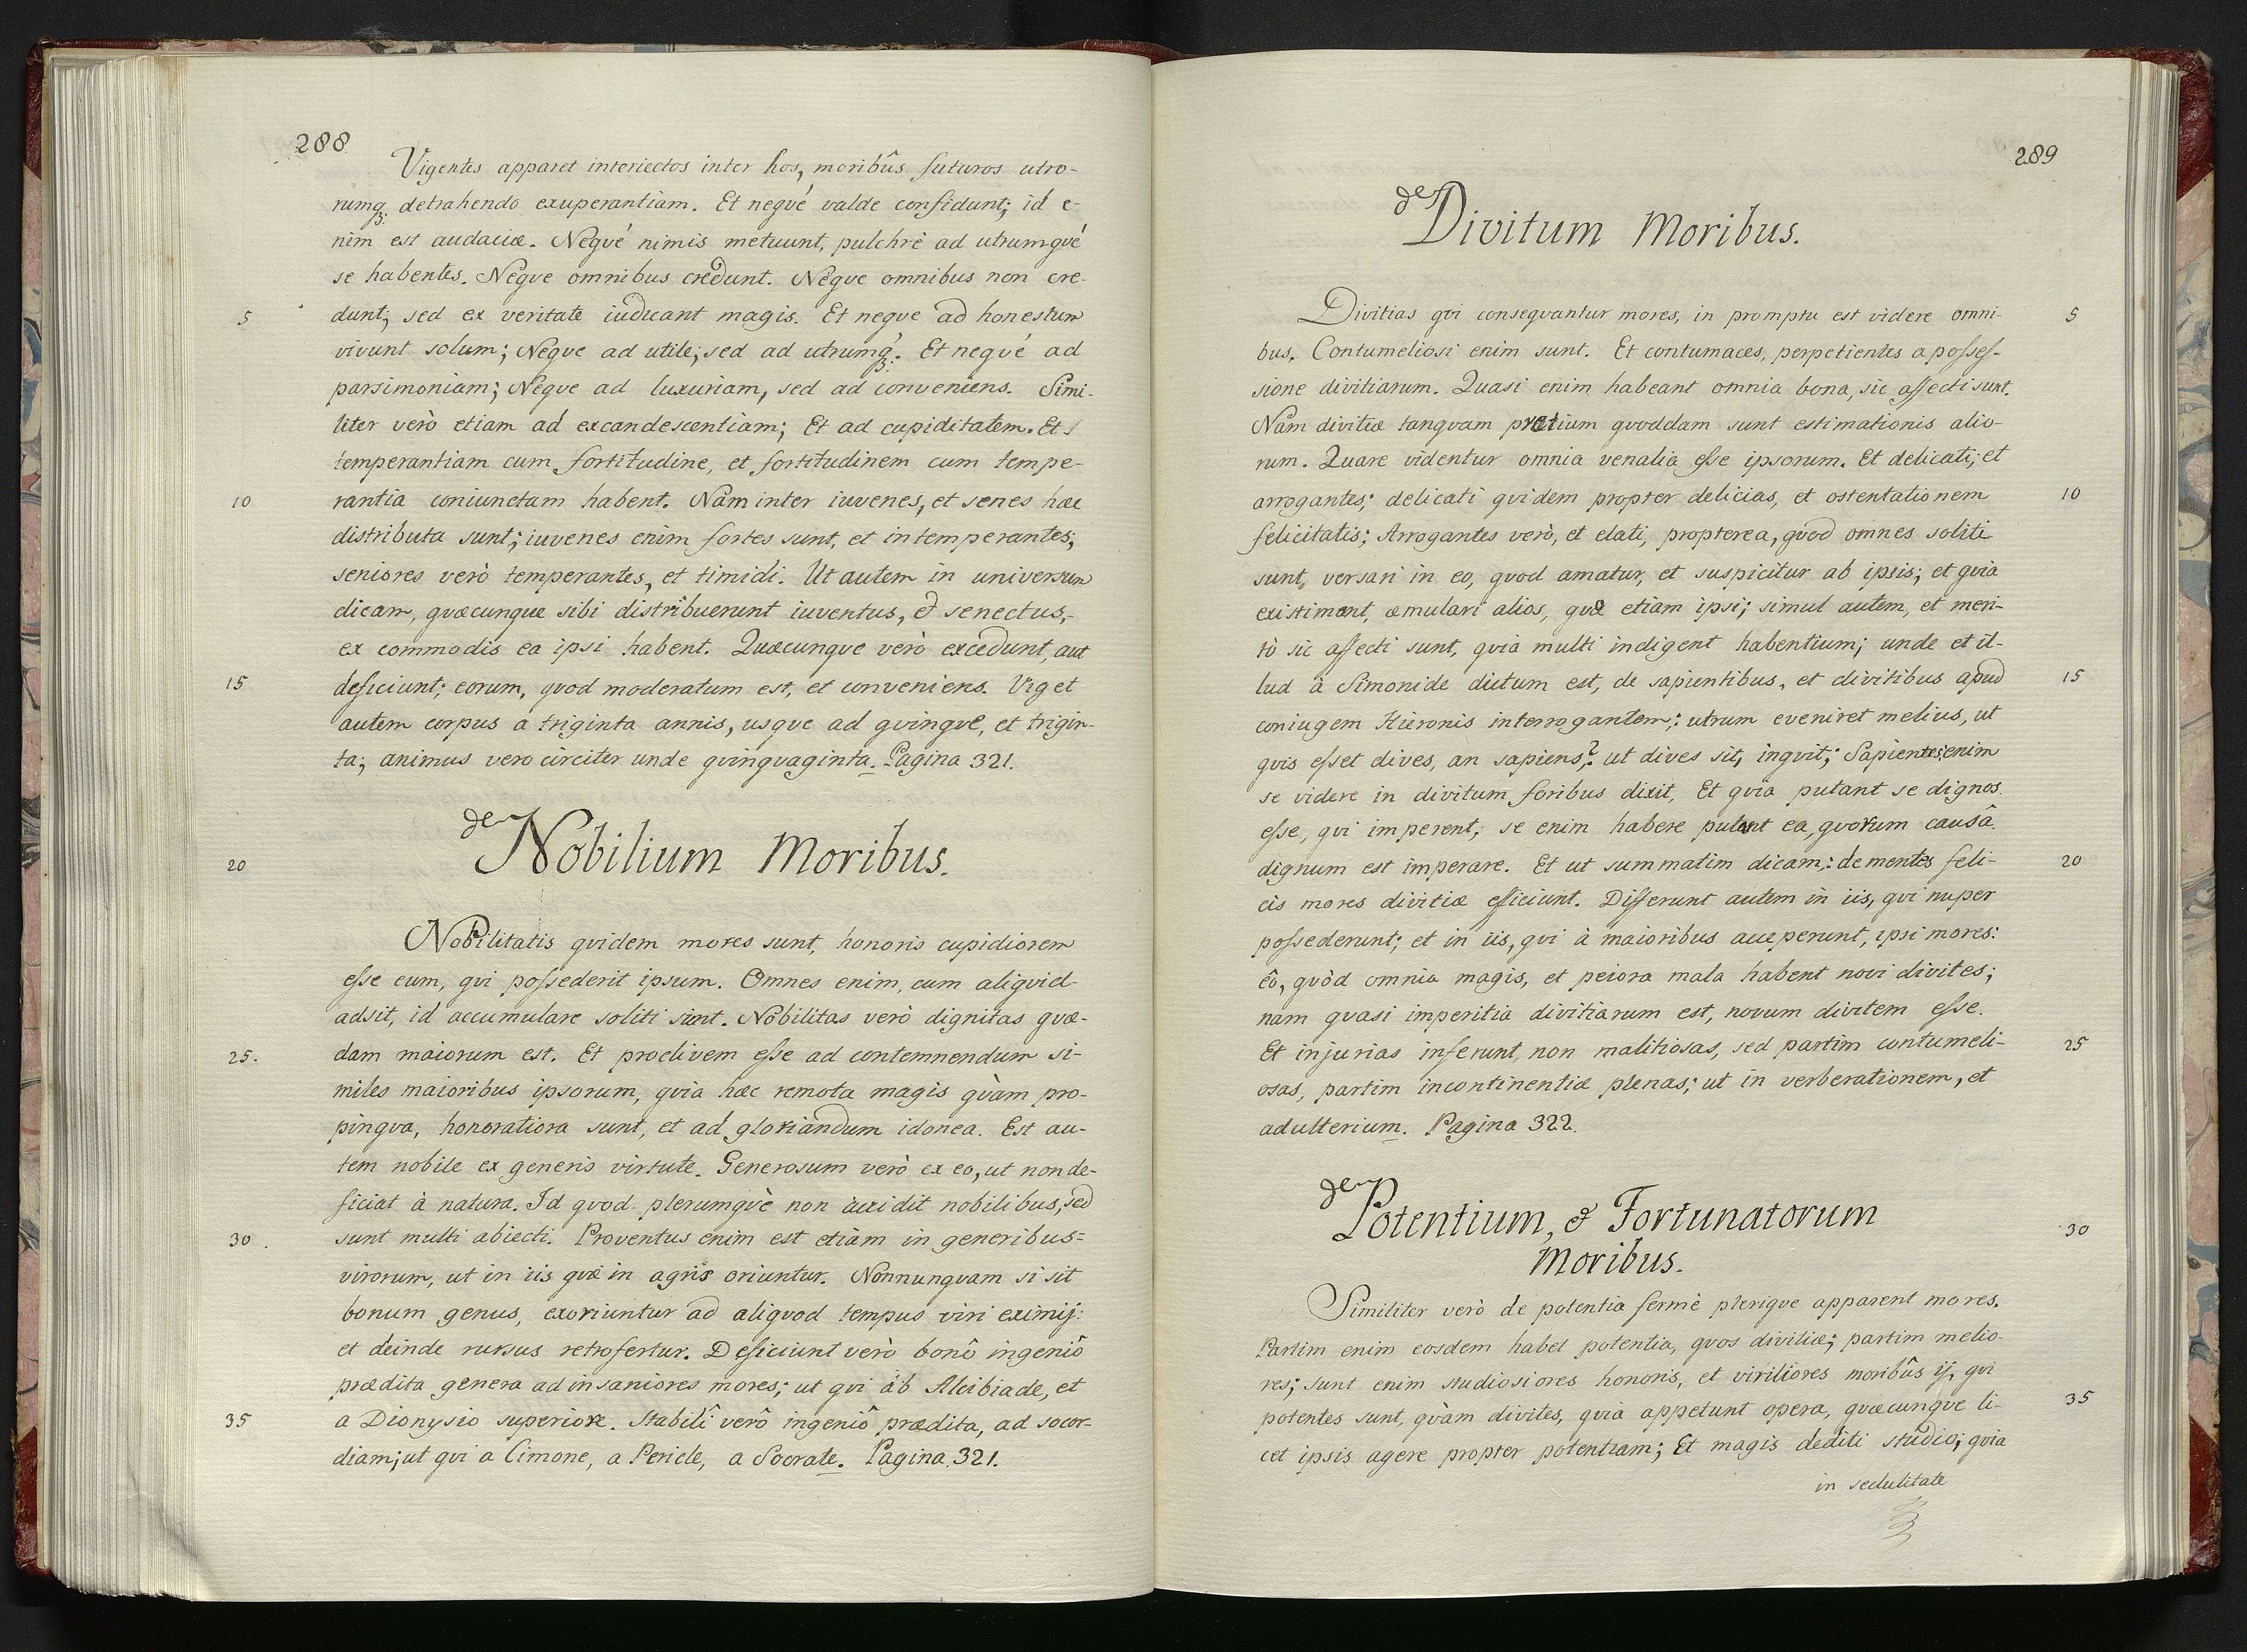 288
Vigentes apparet interiectos inter hos, moribûs futuros utro-
rumq; detrahendo exuperantiam. Et neqvé valde confidunt; id e-
nim est audaciæ. Neqvé nimis metuunt, pulchrè ad utrumqvé
se habentes. Neqve omnibus credunt. Neqve omnibus non cre-
5 dunt; sed ex veritate iudicant magis. Et neqve ad honestum
vivunt solum; Neqve ad utile; sed ad utrumq;. Et neqvé ad
parsimoniam; Neqve ad luxuriam, sed ad conveniens. Simi-
liter verò etiam ad excandescentiam; Et ad cupiditatem. Et
temperantiam cum fortitudine, et fortitudinem cum tempe-
10 rantia coniunctam habent. Nam inter iuvenes, et senes hæc
distributa sunt; iuvenes enim fortes sunt, et intemperantes;
seniores verò temperantes, et timidi. Ut autem in universum
dicam, qvæcunque sibi distribuerunt iuventus, & senectus,
ex commodis ea ipsi habent. Quæcunqve verò excedunt, aut
15 deficiunt; eorum, qvod moderatum est, et conveniens. Viget
autem corpus a triginta annis, usqve ad qvinqve, et trigin-
ta; animus vero circiter unde qvinqvaginta. Pagina 321.
de
20 Nobilium Moribus.
Nobilitatis qvidem mores sunt, honoris cupidiorem
esse eum, qvi possederit ipsum. Omnes enim, cum aliqvid
adsit, id accumulare soliti sunt. Nobilitas verò dignitas qvæ-
25. dam maiorum est. Et proclivem esse ad contemnendum si-
miles maioribus ipsorum, qvia hæc remota magis qvàm pro-
pinqva, honoratiora sunt, et ad gloriandum idonea. Est au-
tem nobile ex generis virtute. Generosum verò ex eo, ut non de-
ficiat à natura. Id qvod plerumqvè non accidit nobilibus, sed
30. sunt multi abiecti. Proventus enim est etiàm in generibus=
virorum, ut in iis qvæ in agris oriuntur. Nonnunqvam si sit
bonum genus, exoriuntur ad aliqvod tempus viri eximij:
et deinde rursus retrofertur. Deficiunt verò bonô ingeniô
prædita genera ad insaniores mores; ut qvi ab Alcibiade, et
35 a Dionysio superiore. Stabilî verô ingeniô prædita, ad socor-
diam; ut qvi a Cimone, a Pericle, a Socrate. Pagina. 321.
289
de
Divitum Moribus.
Divitias qvi conseqvantur mores, in promptu est videre omni- 5
bus. Contumeliosi enim sunt. Et contumaces, perpetientes a posses-
sione divitiarum. Quasi enim habeant omnia bona, sic affecti sunt.
Nam divitiæ tanqvam pretium qvoddam sunt estimationis alio-
rum. Quare videntur omnia venalia esse ipsorum. Et delicati; et
arrogantes; delicati qvidem propter delicias, et ostentationem 10
felicitatis; Arrogantes verò, et elati, propterea, qvod omnes soliti
sunt, versari in eo, qvod amatur, et suspicitur ab ipsis; et qvia
existimant, æmulari alios, qvæ etiam ipsi; simul autem, et meri-
tò sic affecti sunt, qvia multi indigent habentium; unde et il-
lud à Simonide dictum est, de sapientibus, et divitibus apud 15
coniugem Hieronis interrogantem; utrum eveniret melius, ut
qvis esset dives, an sapiens? ut dives sit, inqvit; Sapientes enim
se videre in divitum foribus dixit, Et qvia putant se dignos
esse, qvi imperent; se enim habere putant ea, qvorum causâ
dignum est imperare. Et ut summatim dicam; dementis feli- 20
cis mores divitiæ efficiunt. Differunt autem in iis, qvi nuper
possederunt; et in iis, qvi à maioribus acceperunt, ipsi mores:
eò, qvòd omnia magis, et peiora mala habent novi divites;
nam qvasi imperitia divitiarum est, novum divitem esse.
Et injurias inferunt, non malitiosas, sed partim contumeli- 25
osas, partim incontinentiæ plenas; ut in verberationem, et
adulterium. Pagina 322.
de
Potentium, & Fortunatorum 30
Moribus.
Similiter verò de potentia fermè pleriqve apparent mores.
Partim enim eosdem habet potentia, qvos divitiæ; partim melio-
res; sunt enim studiosiores honoris, et viriliores moribûs ij, qvi
potentes sunt, qvàm divites, qvia appetunt opera, qvæcunqve li- 35
cet ipsis agere propter potentiam; Et magis dediti studio; qvia
in sedulitate